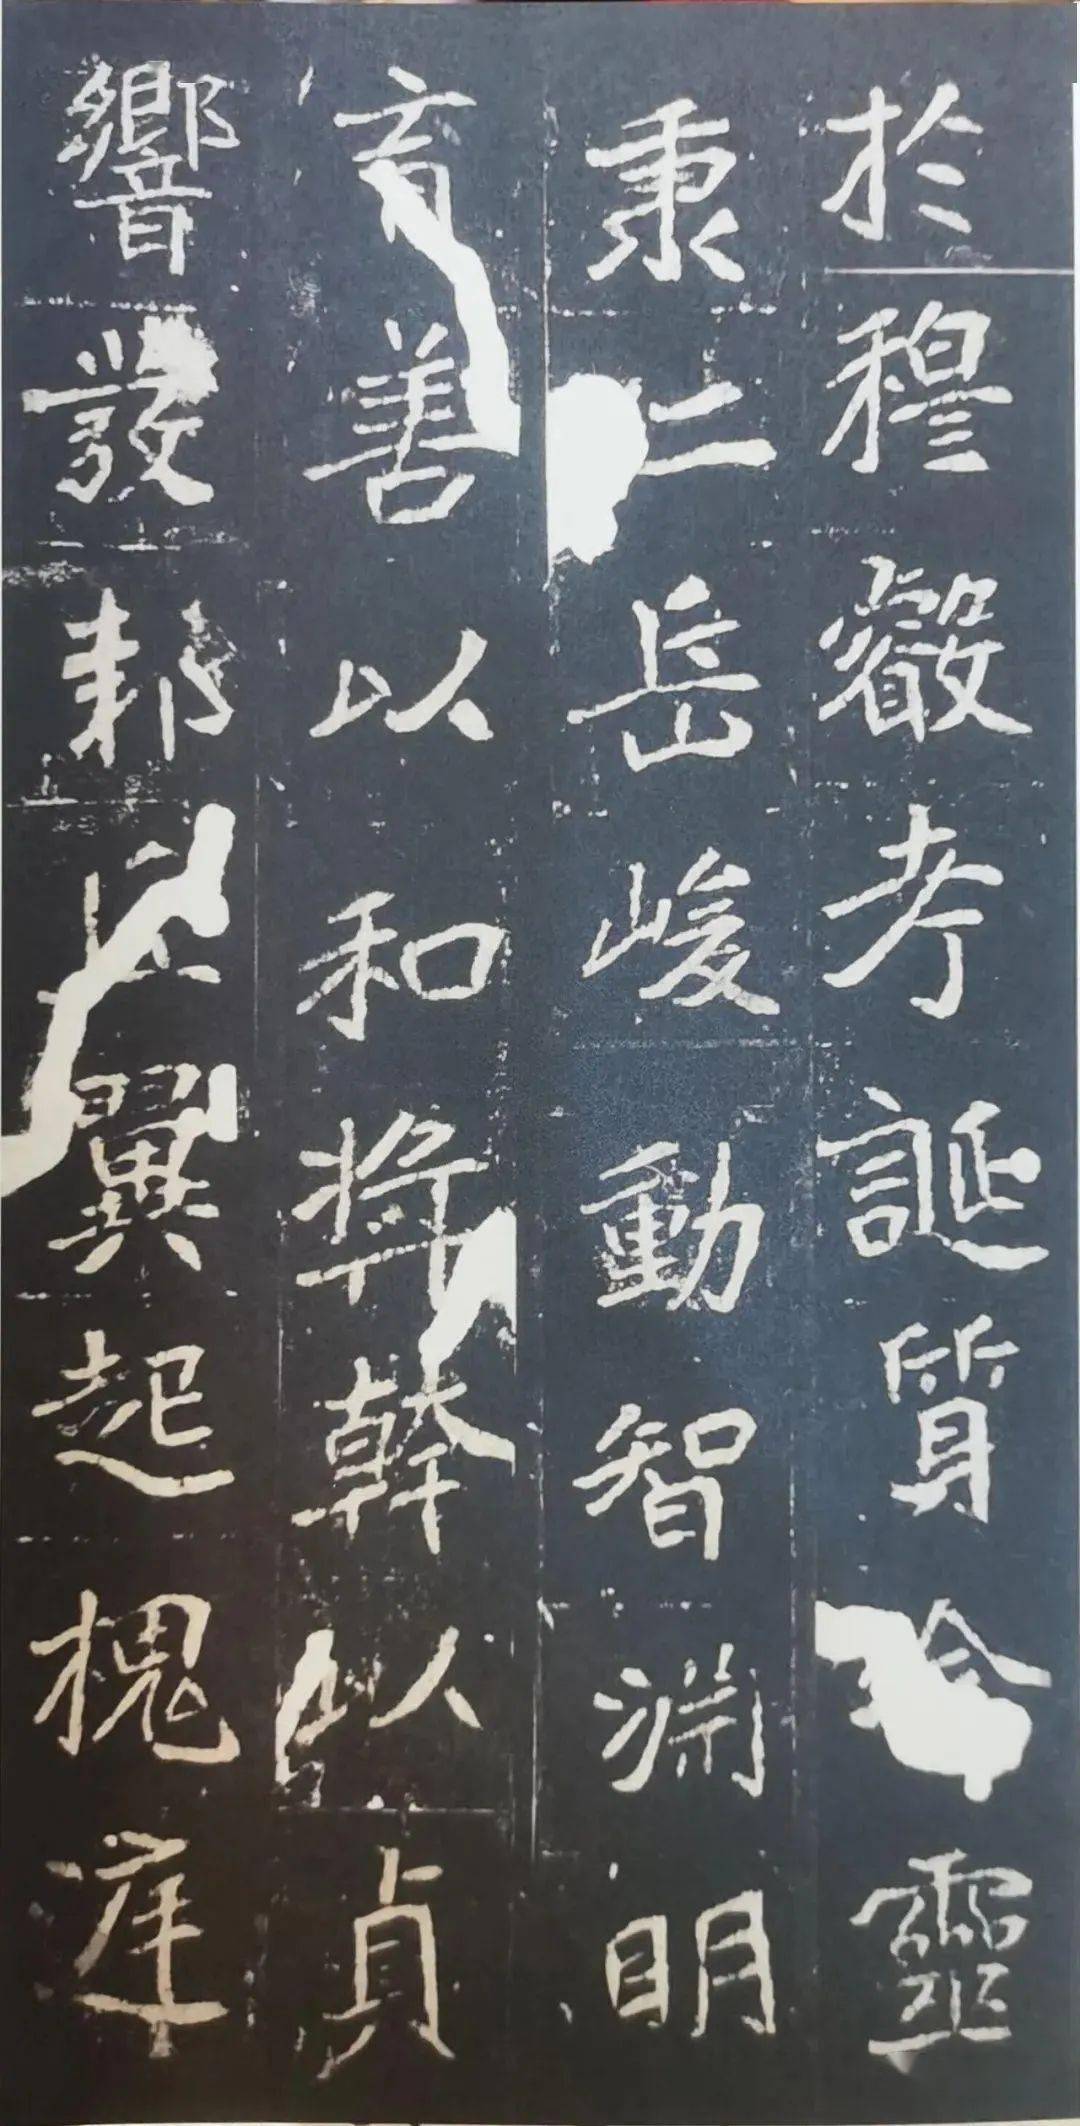 於穆叡考誕質靈
秉仁岳峻動智淵明
育善以和奬幹以貞
響發邦丘翼起槐庭